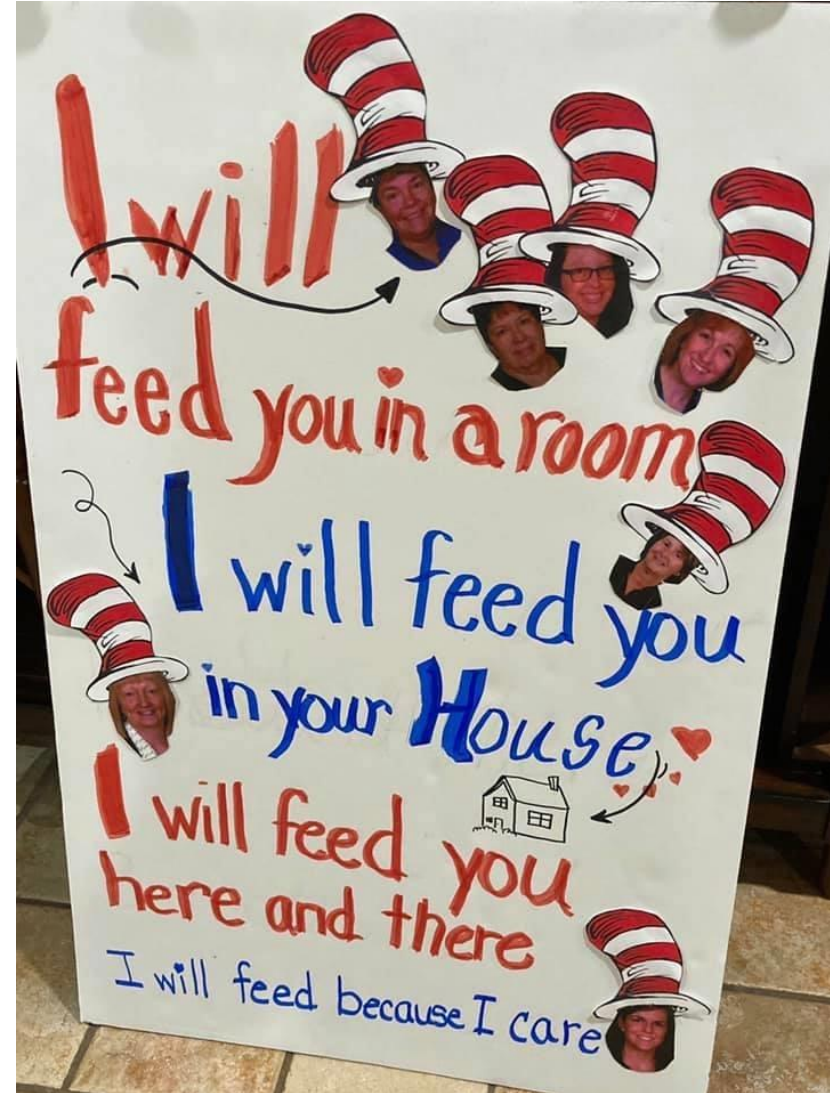 I will
feed you in a room
I will feed you
in your House
I will feed you
here and there
I will feed because I care